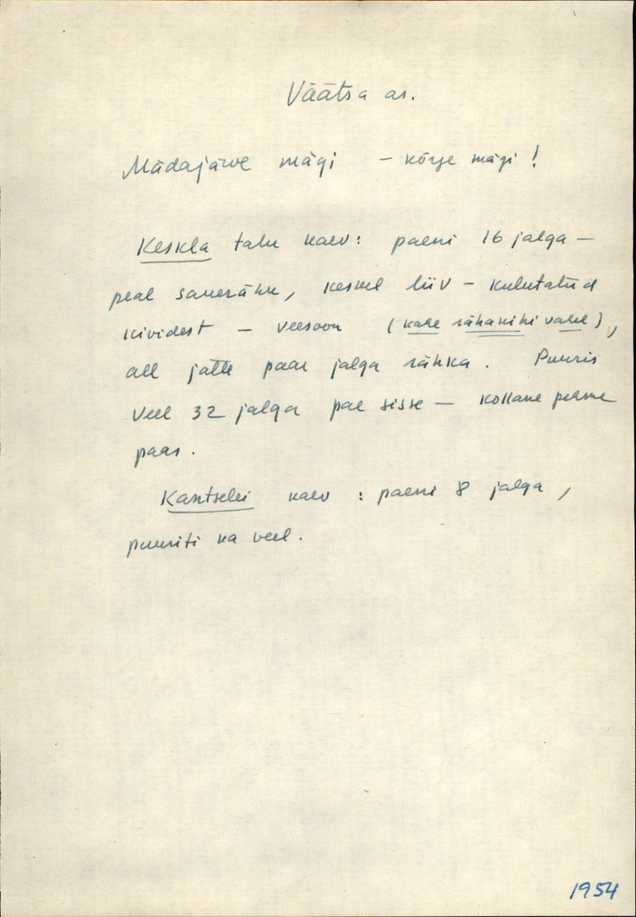 Väätsa as.
Mädajärve mägi – kõrge mägi!
Keskla talu kaev: paeni 16 jalga –
peal saverähk, keskel liiv – kulutatud
kividest – veesoon (kahe rähakihi vahel),
all jälle paar jalga rähka. Puuris
veel 32 jalga pae sisse – kollane pehme
paas.
Kantselei kaev: paeni 8 jalga,
puuriti ka veel.
1954